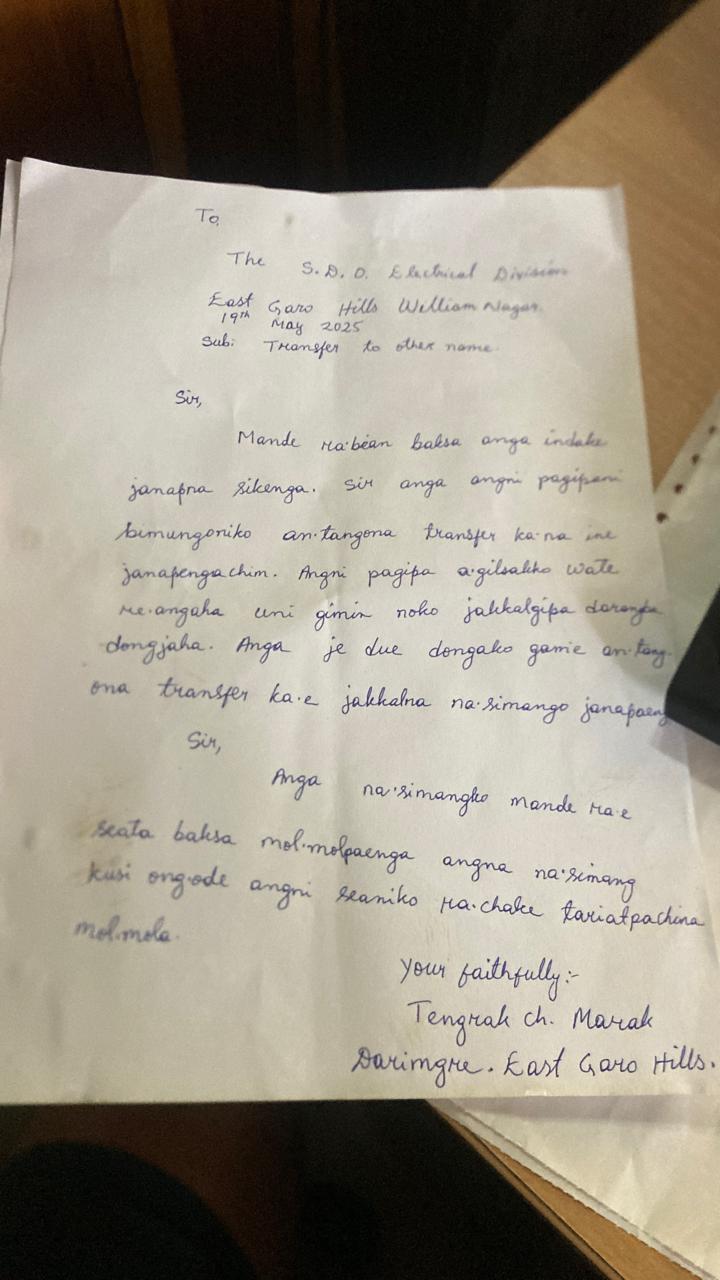 To,
The S.D.O. Electrical Division
East Garo Hills William Nagar.
19th May 2025
Sub: Transfer to other name.
Sir,
Mande ra·bean baksa anga indake
janapna sikenga. Sir anga angni pagipani
bimungoniko an·tangona transfer ka·na ine
janapengachim. Angni pagipa a·gilsakko wate
re·angaha uni gimin noko jakkalgipa darangba
dongjaha. Anga je due dongako gamie an·tang-
ona transfer ka·e jakkalna na·simango janapaeng
Sir,
Anga na·simangko mande ra·e
seata baksa mol·molpaenga angna na·simang
kusi ong·ode angni seaniko ra·chake tariatpachina
mol·mola.
Your faithfully:-
Tengrak ch. Marak
Darimgre. East Garo Hills.